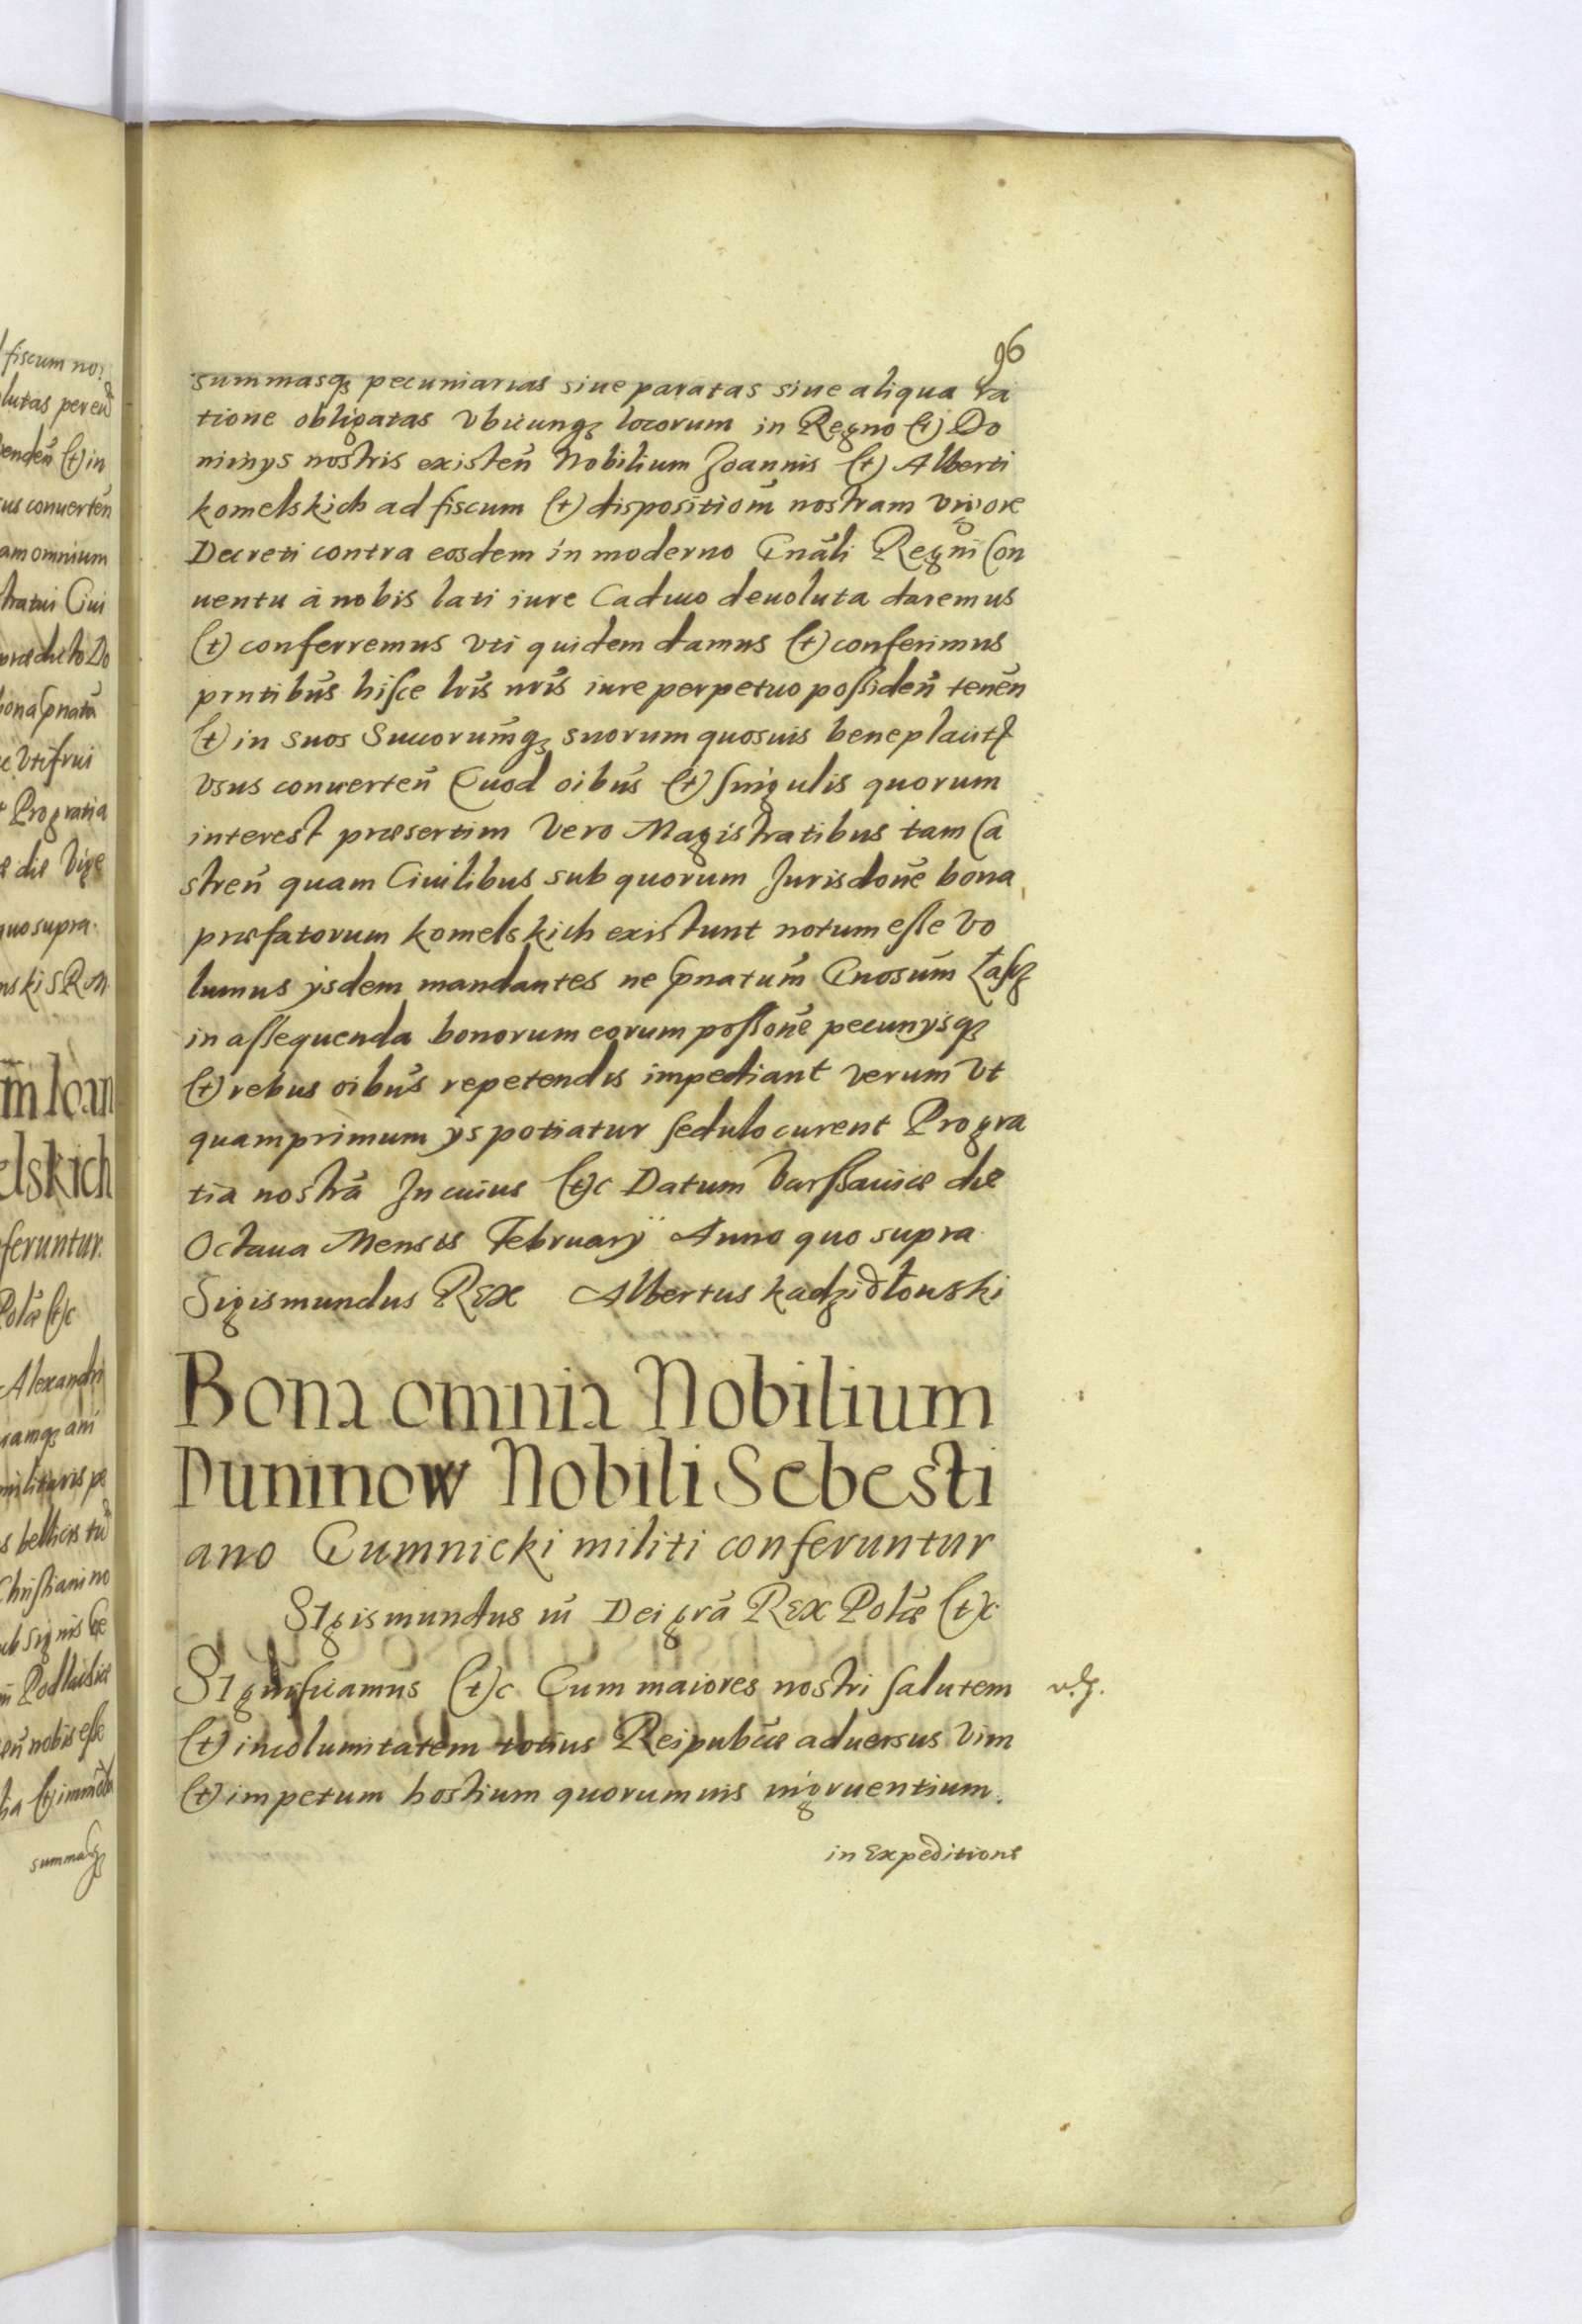 96
summasq₃ pecuniarias siue paratas siue aliqua ra
tione obligatas vbicunq₃ locorum in Regno (t) Do
minijs nostris existeñ Nobilium Joannis (t) Alberti
komelskich ad fiscum (t) dispositiom̃ nostram vigore
Decreti contra eosdem in moderno Gnãli Regni Con
uentu à nobis lati iure Caduco deuoluta daremus
(t) conferremus vti quidem damus (t) conferimus
pn̄tibus hisce lris̃ nris̃ iure perpetuo possideñ teneñ
(t) in suos Succorumq₃ suorum quosuis beneplaciti
vsus conuerteñ Quod oibus̃ (t) singulis quorum
interest præsertim vero Magistratibus tam Ca
streñ quam Ciuilibus sub quorum Jurisdoñe bona
præfatorum komelskich existunt notum esse vo
lumus ijsdem mandantes ne Gnosum
in assequenda bonorum eorum possoñe pecunijsq₃
(t) rebus oibus̃ repetendis impediant verum vt
quamprimum ijs potiatur sedulo curent Pro gra
tia nostrã In cuius (t)c Datum Varssauiæ die
Octaua Mensis February Anno quo supra.
Sigismundus Rex Albertus kadzidłowski
Bona omnia Nobilium
Duninow Nobili Sebesti
ano Gumnicki militi conferuntur
SIgismundus iii Dei grã Rex Polæ (t)c
SIgnificamus (t)c Cum maiores nostri salutem
(t) incolumitatem totius Reipubcæ aduersus vim
(t) impetum hostium quorumuis ingruentium.
in Expeditione
fiscum no:
endeñ (t) in
us conuerteñ
am omnium
stratui Ciui
prædicto Do
e vtifrui
t Pro gratia
e die Vige
quo supra.
nski SRM
m Ioan
elskich
feruntur.
Polæ (t)c
Alexandri
militaris pe
s bellicis
Christiani no
ub signis
Podlachiæ
eñ nobis esse
summasq₃